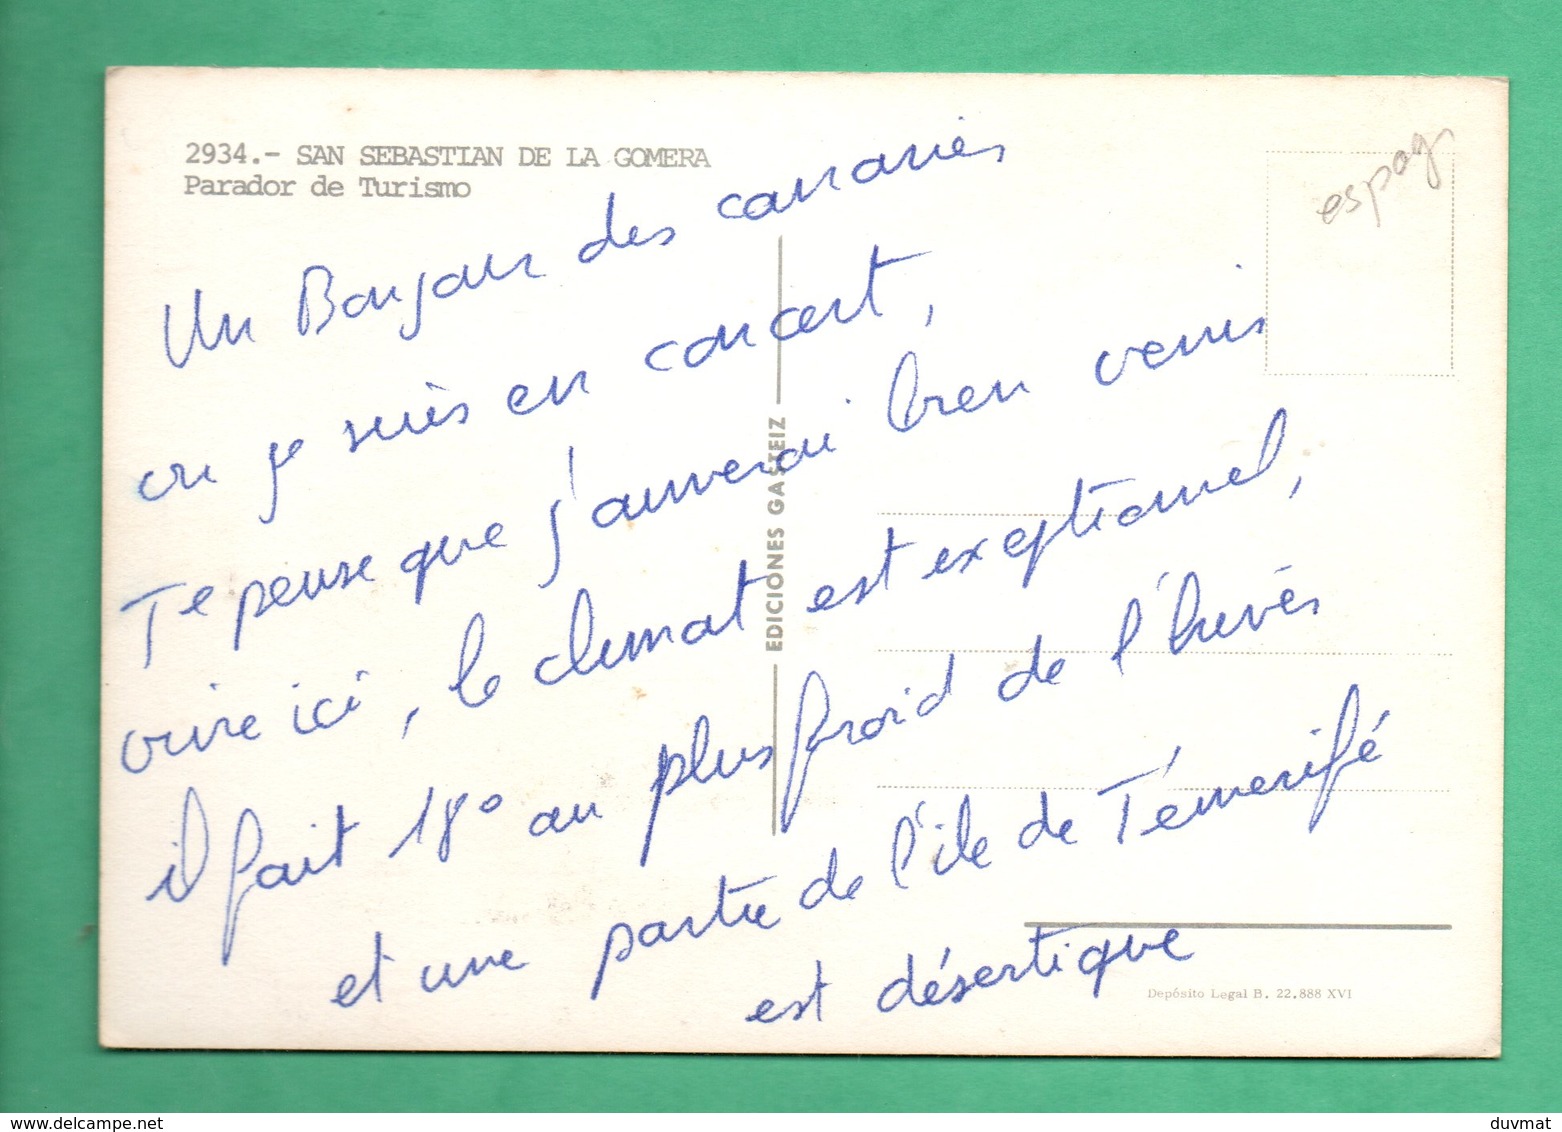 2934.- SAN SEBASTIAN DE LA GOMERA
Parador de Turismo
espag
Un Bonjour des canaries
ou je suis en concert,
Te pense que j'aimerai bien venir
vivre ici, le climat est exeptionnel,
il fait 18° au plus froid de l'hivér
et une partie de l'ile de Ténérifé
est désertique
EDICIONES GASTEIZ
Depósito Legal B. 22.888 XVI
www.delcampe.net
duvmat